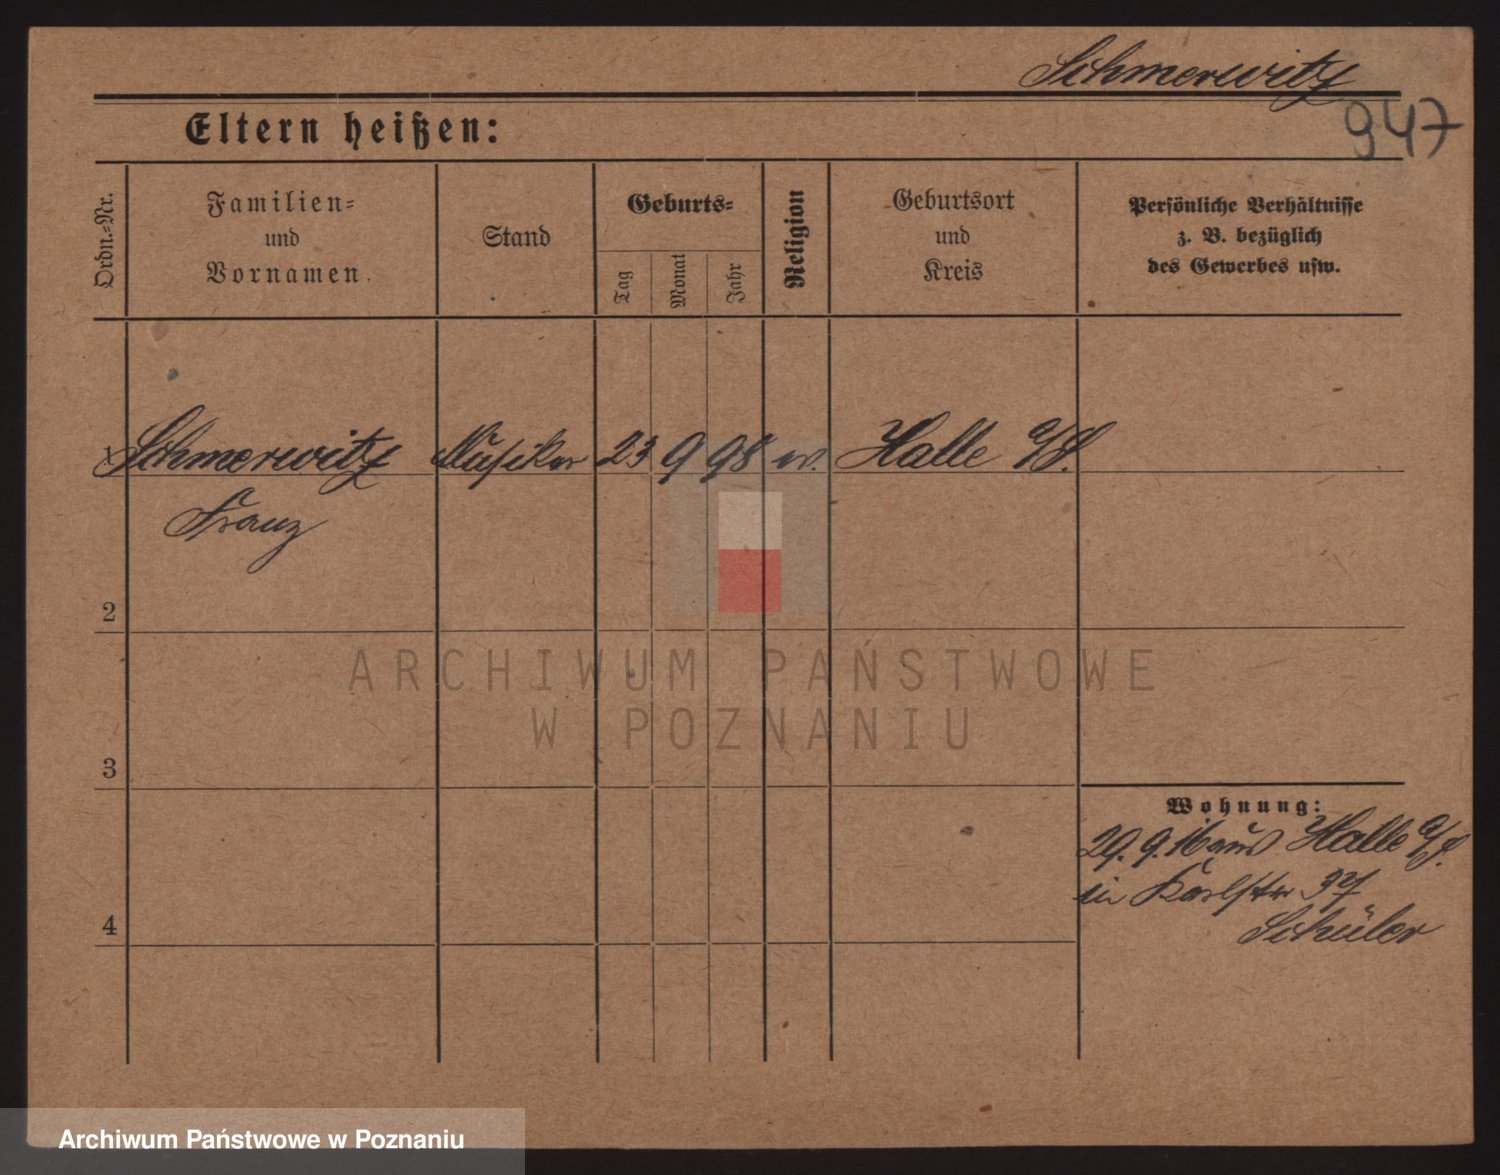 Schmerwitz
947
Eltern heißen:
Ordn.-Nr.
Familien-
und
Vornamen.
Stand
Geburts-
Tag
Monat
Jahr
Religion
Geburtsort
und
Kreis
Persönliche Verhältnisse
z. B. bezüglich
des Gewerbes usw.
1 Schmerwitz Musiker 23 9 98 ev. Halle a/S.
Franz
2
ARCHIWUM PAŃSTWOWE
W POZNANIU
3
Wohnung:
29. 9. 16 aus Halle a/S.
in Karlstr 37
Schüler
4
Archiwum Państwowe w Poznaniu